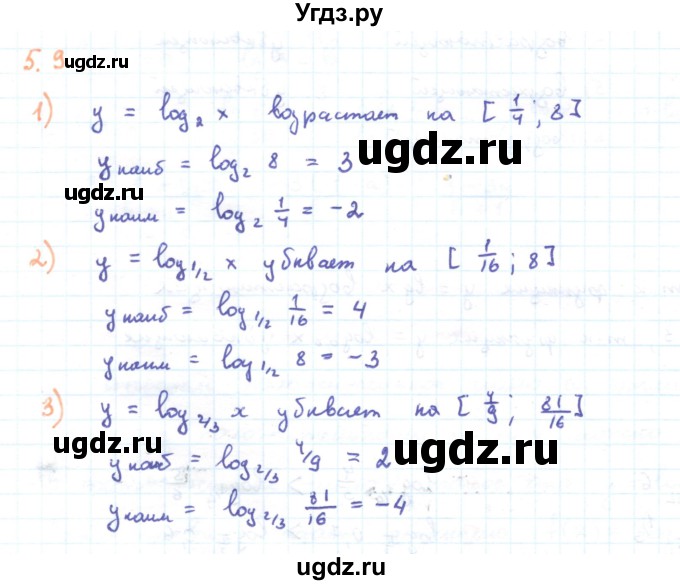 Угдз.ру
5.9 ugdz.ru ugdz.ru
1) y = log₂ x возрастает на [1/4; 8]
y наиб = log₂ 8 = 3 ugdz.ru
ugdz.ru
y наим = log₂ 1/4 = -2
2) y = log 1/2 x убивает на [1/16; 8]
y наиб = log 1/2 1/16 = 4
y наим = log 1/2 8 = -3
3) y = log 2/3 x убивает на [4/9; 81/16]
ugdz.ru ugdz.ru
y наиб = log 2/3 4/9 = 2
y наим = log 2/3 81/16 = -4
ugdz.ru ugdz.ru
Угдз.ру